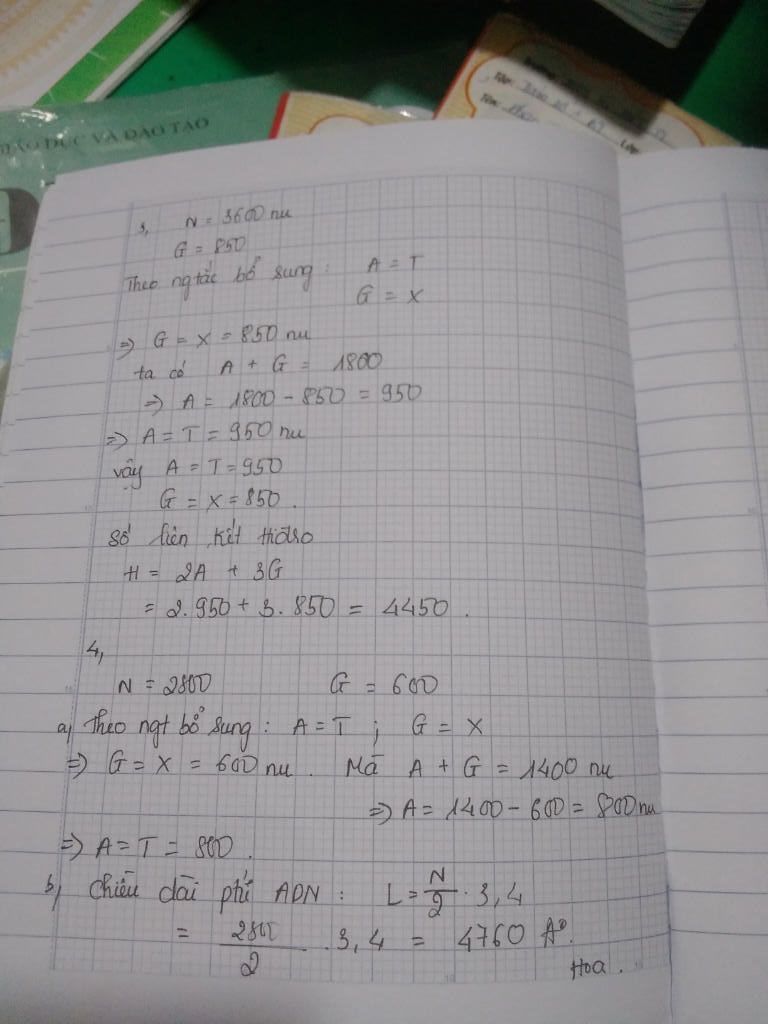 DỤC VÀ ĐÀO TẠO
3, N = 3600 nu
G = 850
Theo ng tắc bổ sung : A = T
G = X
=> G = X = 850 nu
ta có A + G = 1800
=> A = 1800 - 850 = 950
=> A = T = 950 nu
vậy A = T = 950
G = X = 850 .
số liên kết hiđro
H = 2A + 3G
= 2.950 + 3.850 = 4450 .
4,
N = 2800 G = 600
a) Theo ngt bổ sung : A = T ; G = X
=> G = X = 600 nu . Mà A + G = 1400 nu
=> A = 1400 - 600 = 800 nu
=> A = T = 800 .
b) Chiều dài phtử ADN : L = N/2 . 3,4
= 2800/2 . 3,4 = 4760 A⁰.
Hoa .